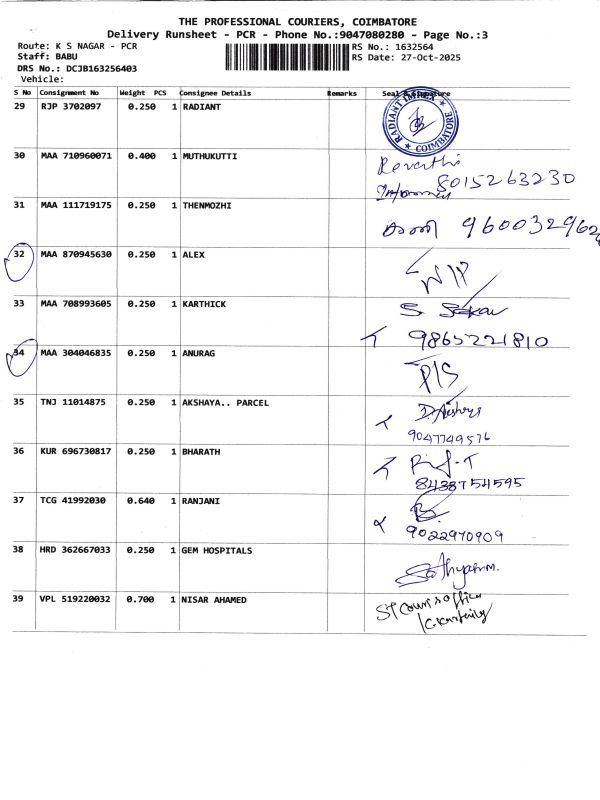 THE PROFESSIONAL COURIERS, COIMBATORE
Delivery Runsheet - PCR - Phone No.:9047080280 - Page No.:3
Route: K S NAGAR - PCR RS No.: 1632564
Staff: BABU RS Date: 27-Oct-2025
DRS No.: DCJB163256403
Vehicle:
S No Consignment No Weight PCS Consignee Details Remarks Seal & Signature
29 RJP 3702097 0.250 1 RADIANT
RADIANT COIMBATORE
30 MAA 710960071 0.400 1 MUTHUKUTTI Revathi
8015263230
31 MAA 111719175 0.250 1 THENMOZHI
960032962
32 MAA 870945630 0.250 1 ALEX
33 MAA 708993605 0.250 1 KARTHICK S
9865221810
34 MAA 304046835 0.250 1 ANURAG P/S
35 TNJ 11014875 0.250 1 AKSHAYA.. PARCEL
9047749576
36 KUR 696730817 0.250 1 BHARATH
8438754595
37 TCG 41992030 0.640 1 RANJANI
9022970909
38 HRD 362667033 0.250 1 GEM HOSPITALS
39 VPL 519220032 0.700 1 NISAR AHAMED office